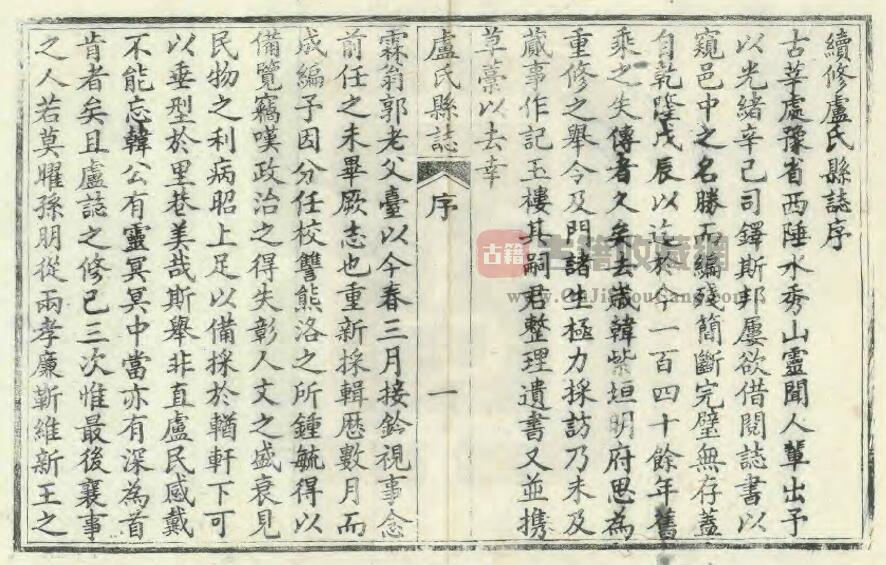 續修盧氏縣誌序
古莘處豫省西陲水秀山靈聞人輩出予
以光緒辛巳司鐸斯邦屢欲借閱誌書以
窺邑中之名勝而編殘簡斷完璧無存蓋
自乾隆戊辰以迄於今一百四十餘年舊
乘之失傳者久矣去歲韓紫垣明府思為
重修之舉令及門諸生極力採訪乃未及
蕆事作記玉樓其嗣君整理遺書又並攜
草藁以去幸
盧氏縣誌
序
一
霖翁郭老父臺以今春三月接鈐視事念
前任之未畢厥志也重新採輯歷數月而
成編予因分任校讐熊洛之所鍾毓得以
備覽竊嘆政治之得失彰人文之盛衰見
民物之利病昭上足以備採於輶軒下可
以垂型於里巷美哉斯舉非直盧民感戴
不能忘韓公有靈冥冥中當亦有深為首
肯者矣且盧誌之修已三次惟最後襄事
之人若莫曜孫朋從兩孝廉靳維新王之
古籍
古籍收藏網